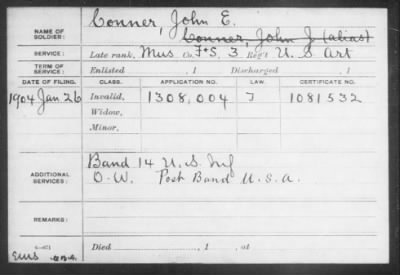 Conner, John E.
NAME OF SOLDIER: Conner, John J (alias)
SERVICE: Late rank, Mus Co. F+S, 3 Reg't U. S Art
TERM OF SERVICE: Enlisted , 1 Discharged , 1
DATE OF FILING. CLASS. APPLICATION NO. LAW. CERTIFICATE NO.
1904 Jan 26 Invalid, 1308,004 J 1081532
Widow,
Minor,
ADDITIONAL SERVICES: Band 14 U.S. Inf
O.W. Post Band U.S.A.
REMARKS:
Died , 1 , at